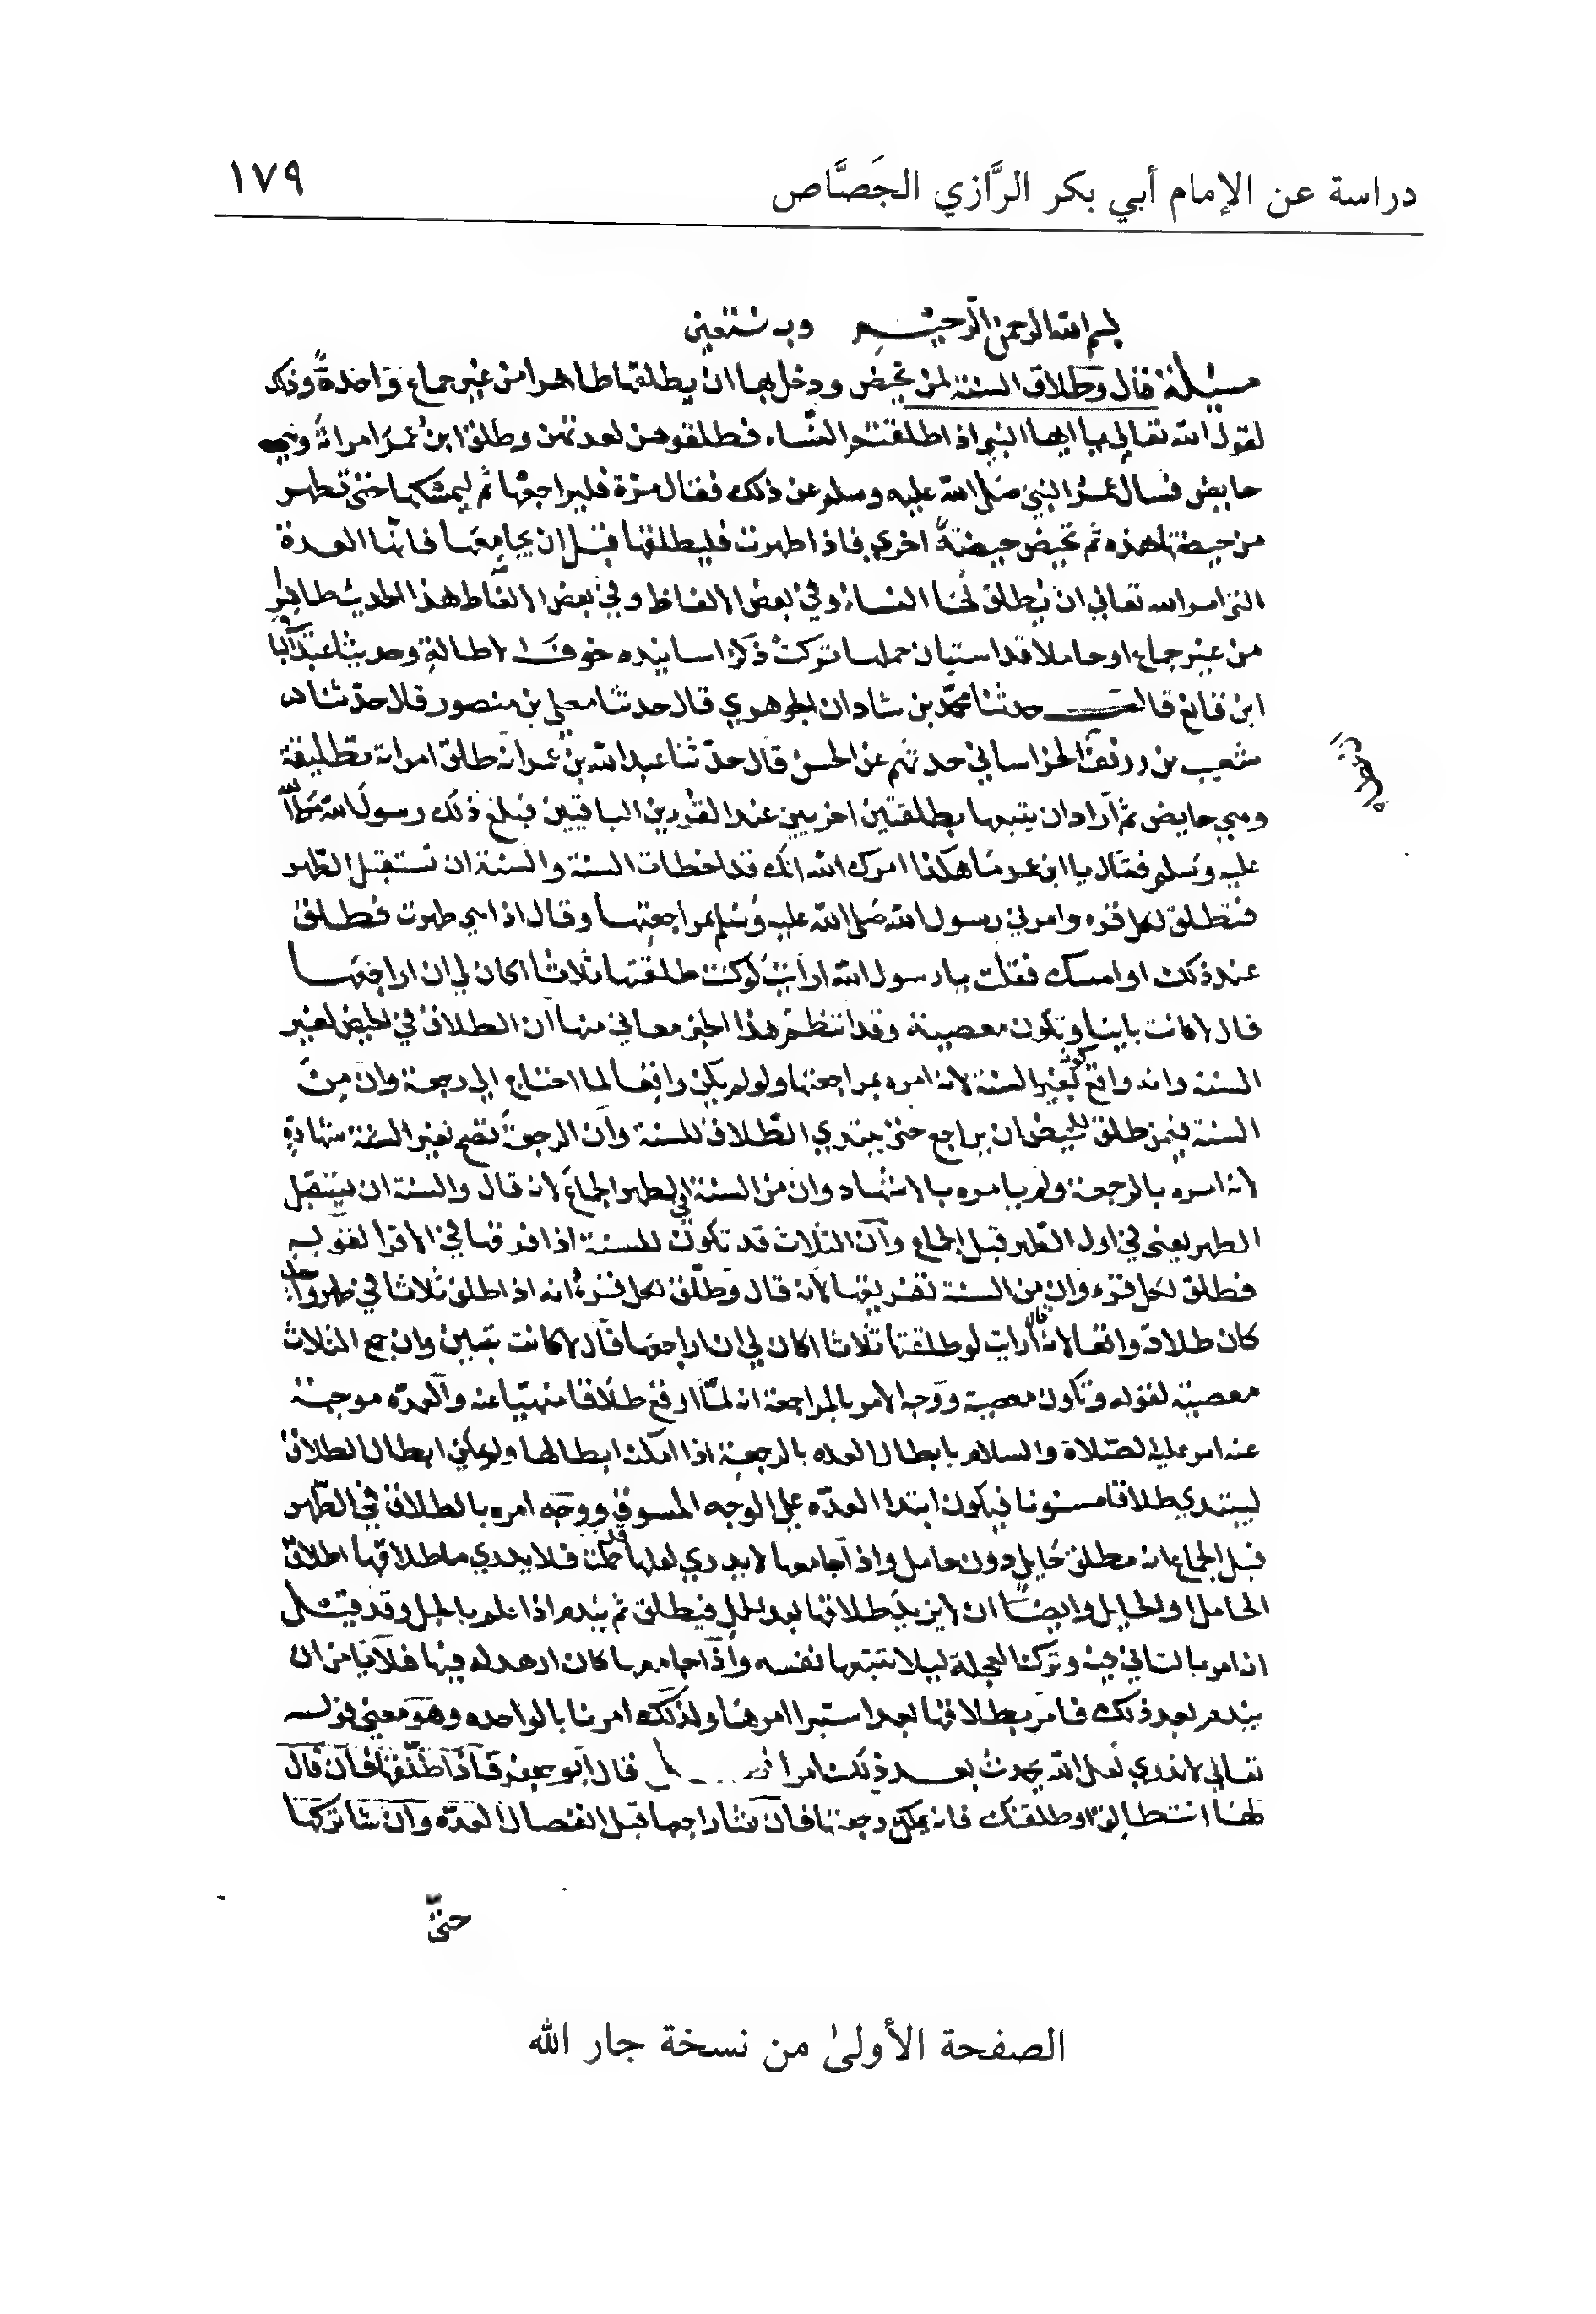 دراسة عن الإمام أبي بكر الرَّازي الجَصَّاص ١٧٩
بسم الله الرحمن الرحيم وبه نستعين
مسئلة قال وطلاق السنة لمن تحيض ودخل بها ان يطلقها طاهرا من غير جماع واحدةً وذلك
لقول الله تعالى يا ايها النبي اذا طلقتم النساء فطلقوهن لعدتهن وطلق ابن عمر امراته وهي
حايض فسال عمر النبي صلى الله عليه وسلم عن ذلك فقال مرة فليراجعها ثم ليمسكها حتى تطهر
من حيضتها هذه ثم تحيض حيضة اخرى فاذا طهرت فليطلقها قبل ان يجامعها فانها العدة
التي امر الله تعالى ان يطلق لها النساء وفي بعض الالفاظ وفي بعض الفاظ هذا الحديث طاهرا
من غير جماع او حاملا قد استبان حملها تركت ذكر اسانيده خوف الاطالة وحدثنا عبد الباقي
ابن قانع قال حدثنا محمد بن شاذان الجوهري قال حدثنا معلى بن منصور قال حدثنا
شعيب بن رزيق الخراساني حدثهم عن الحسن قال حدثنا عبد الله بن عمر انه طلق امراته تطليقة
وهي حايض ثم اراد ان يتبعها بطلقتين اخريين عند القرين الباقيين فبلغ ذلك رسول الله صلى الله
عليه وسلم فقال يا ابن عمر ما هكذا امرك الله انك قد اخطات السنة والسنة ان تستقبل الطهر
فتطلق لكل قرء وامرني رسول الله صلى الله عليه وسلم بمراجعتها وقال اذا هي طهرت فطلق
عند ذلك او امسك فقلت يا رسول الله ارايت لو كنت طلقتها ثلاثا اكان لي ان اراجعها
قال لا كانت باينا وتكون معصية وقد انتظم هذا الخبر معاني منها ان الطلاق في الحيض لغير
السنة وانه واقع كونه لغير السنة لانه امره بمراجعتها ولو لم يكن واقعا لما احتاج الى رجعة وان من
السنة فيمن طلق للحيض ان يراجع حتى يبتدي الطلاق للسنة وان الرجعة تصح بغير شهادة
لانه امره بالرجعة ولم يامره بالاشهاد وان من السنة في الطهر الجماع لانه قال والسنة ان يستقبل
الطهر يعني في اول الطهر قبل الجماع وان الثلاث قد تكون للسنة اذا فرقها في الاقرا لقوله
فطلق لكل قرء وان من السنة تفريقها لانه قال وطلق لكل قرء وانه اذا طلق ثلاثا في طهر واحد
كان طلاقه واقعا لانه قال ارايت لو طلقتها ثلاثا اكان لي ان اراجعها قال لا كانت تبين وان جمع الثلاث
معصية لقوله وتكون معصية ووجه الامر بالمراجعة انه لما اوقع طلاقا منهيا عنه والعدة موجبة
عنه امر عليه الصلاة والسلام بابطال العده بالرجعة اذا امكن ابطالها ولم يمكن ابطال الطلاق
ليبتدي طلاقا مسنونا فيكون ابتدا العدة على الوجه المسنون ووجه امره بالطلاق في الطهر
قبل الجماع انه مطلق حايل دون حامل واذا جامعها لا يدري لعلها قد حملت فلا يدري ما طلاقها اطلاق
الحامل او الحايل وايضا ان لا يريد طلاقها بعد الحمل فيطلق ثم يندم اذا علم بالحبل وقد قيل
انه امر بالتاني فيه وترك العجلة ليلا تتبعها نفسه واذا جامعها كان ازهد له فيها فلا يامن ان
يندم بعد ذلك فامر بطلاقها بعد استبرا امرها ولذلك امرنا بالواحده وهو معنى قوله
تعالى لا تدري لعل الله يحدث بعد ذلك امرا قال ابو جعفر فاذا طلقها فان قال
لها انت طالق او طلقتك فانه يملك رجعتها فان شا راجعها قبل انفصال العدة وان شا تركها
حتى
الصفحة الأولىٰ من نسخة جار الله